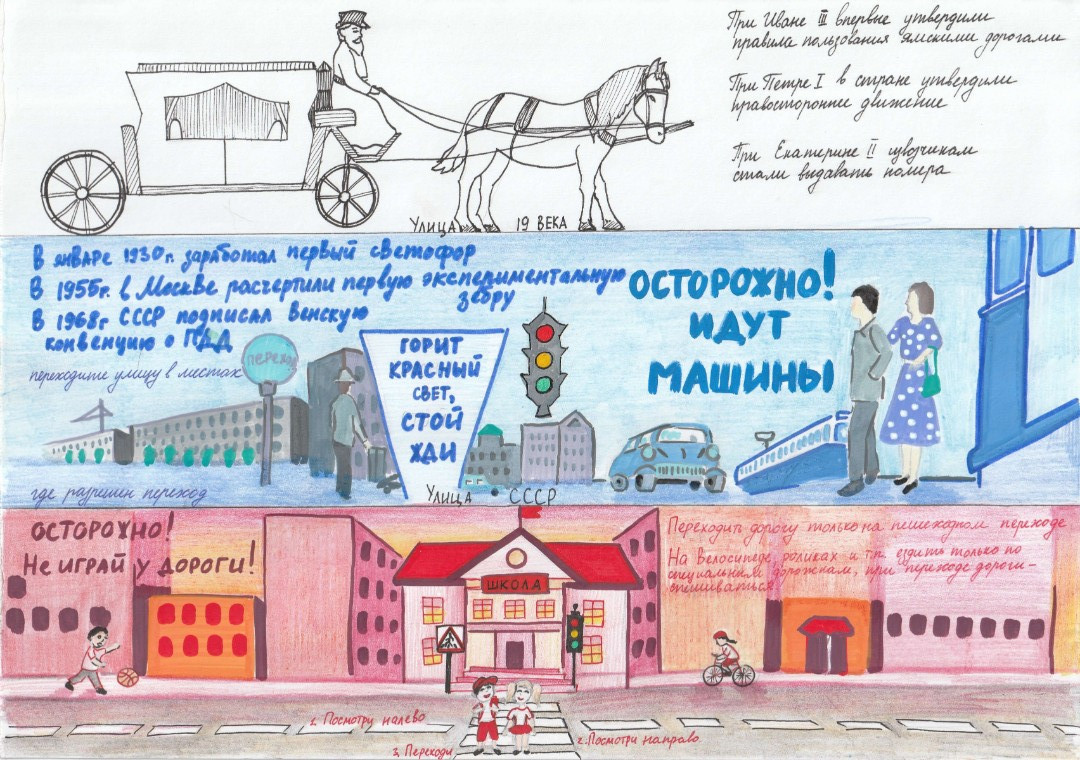 При Иване III впервые утвердили
правила пользования ямскими дорогами
При Петре I в стране утвердили
правостороннее движение
При Екатерине II извозчикам
стали выдавать номера
Улица 19 века
В январе 1930г. заработал первый светофор
В 1955г. в Москве расчертили первую экспериментальную
зебру
В 1968г СССР подписал Венскую
конвенцию о ПДД
ОСТОРОЖНО!
ИДУТ
МАШИНЫ
ПЕРЕХОД
переходите улицу в местах
где разрешен переход
ГОРИТ
КРАСНЫЙ
СВЕТ,
СТОЙ
ЖДИ
Улица СССР
ОСТОРОЖНО!
Не играй у дороги!
Переходить дорогу только на пешеходном переходе
На велосипеде, роликах и т.п. ездить только по
специальным дорожкам, при переходе дороги -
спешиваться
ШКОЛА
1. Посмотри налево
2. Посмотри направо
3. Переходи